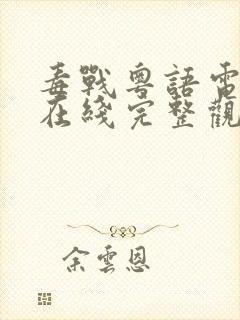 毒戰粵語電
在綫完整觀
余雲恩